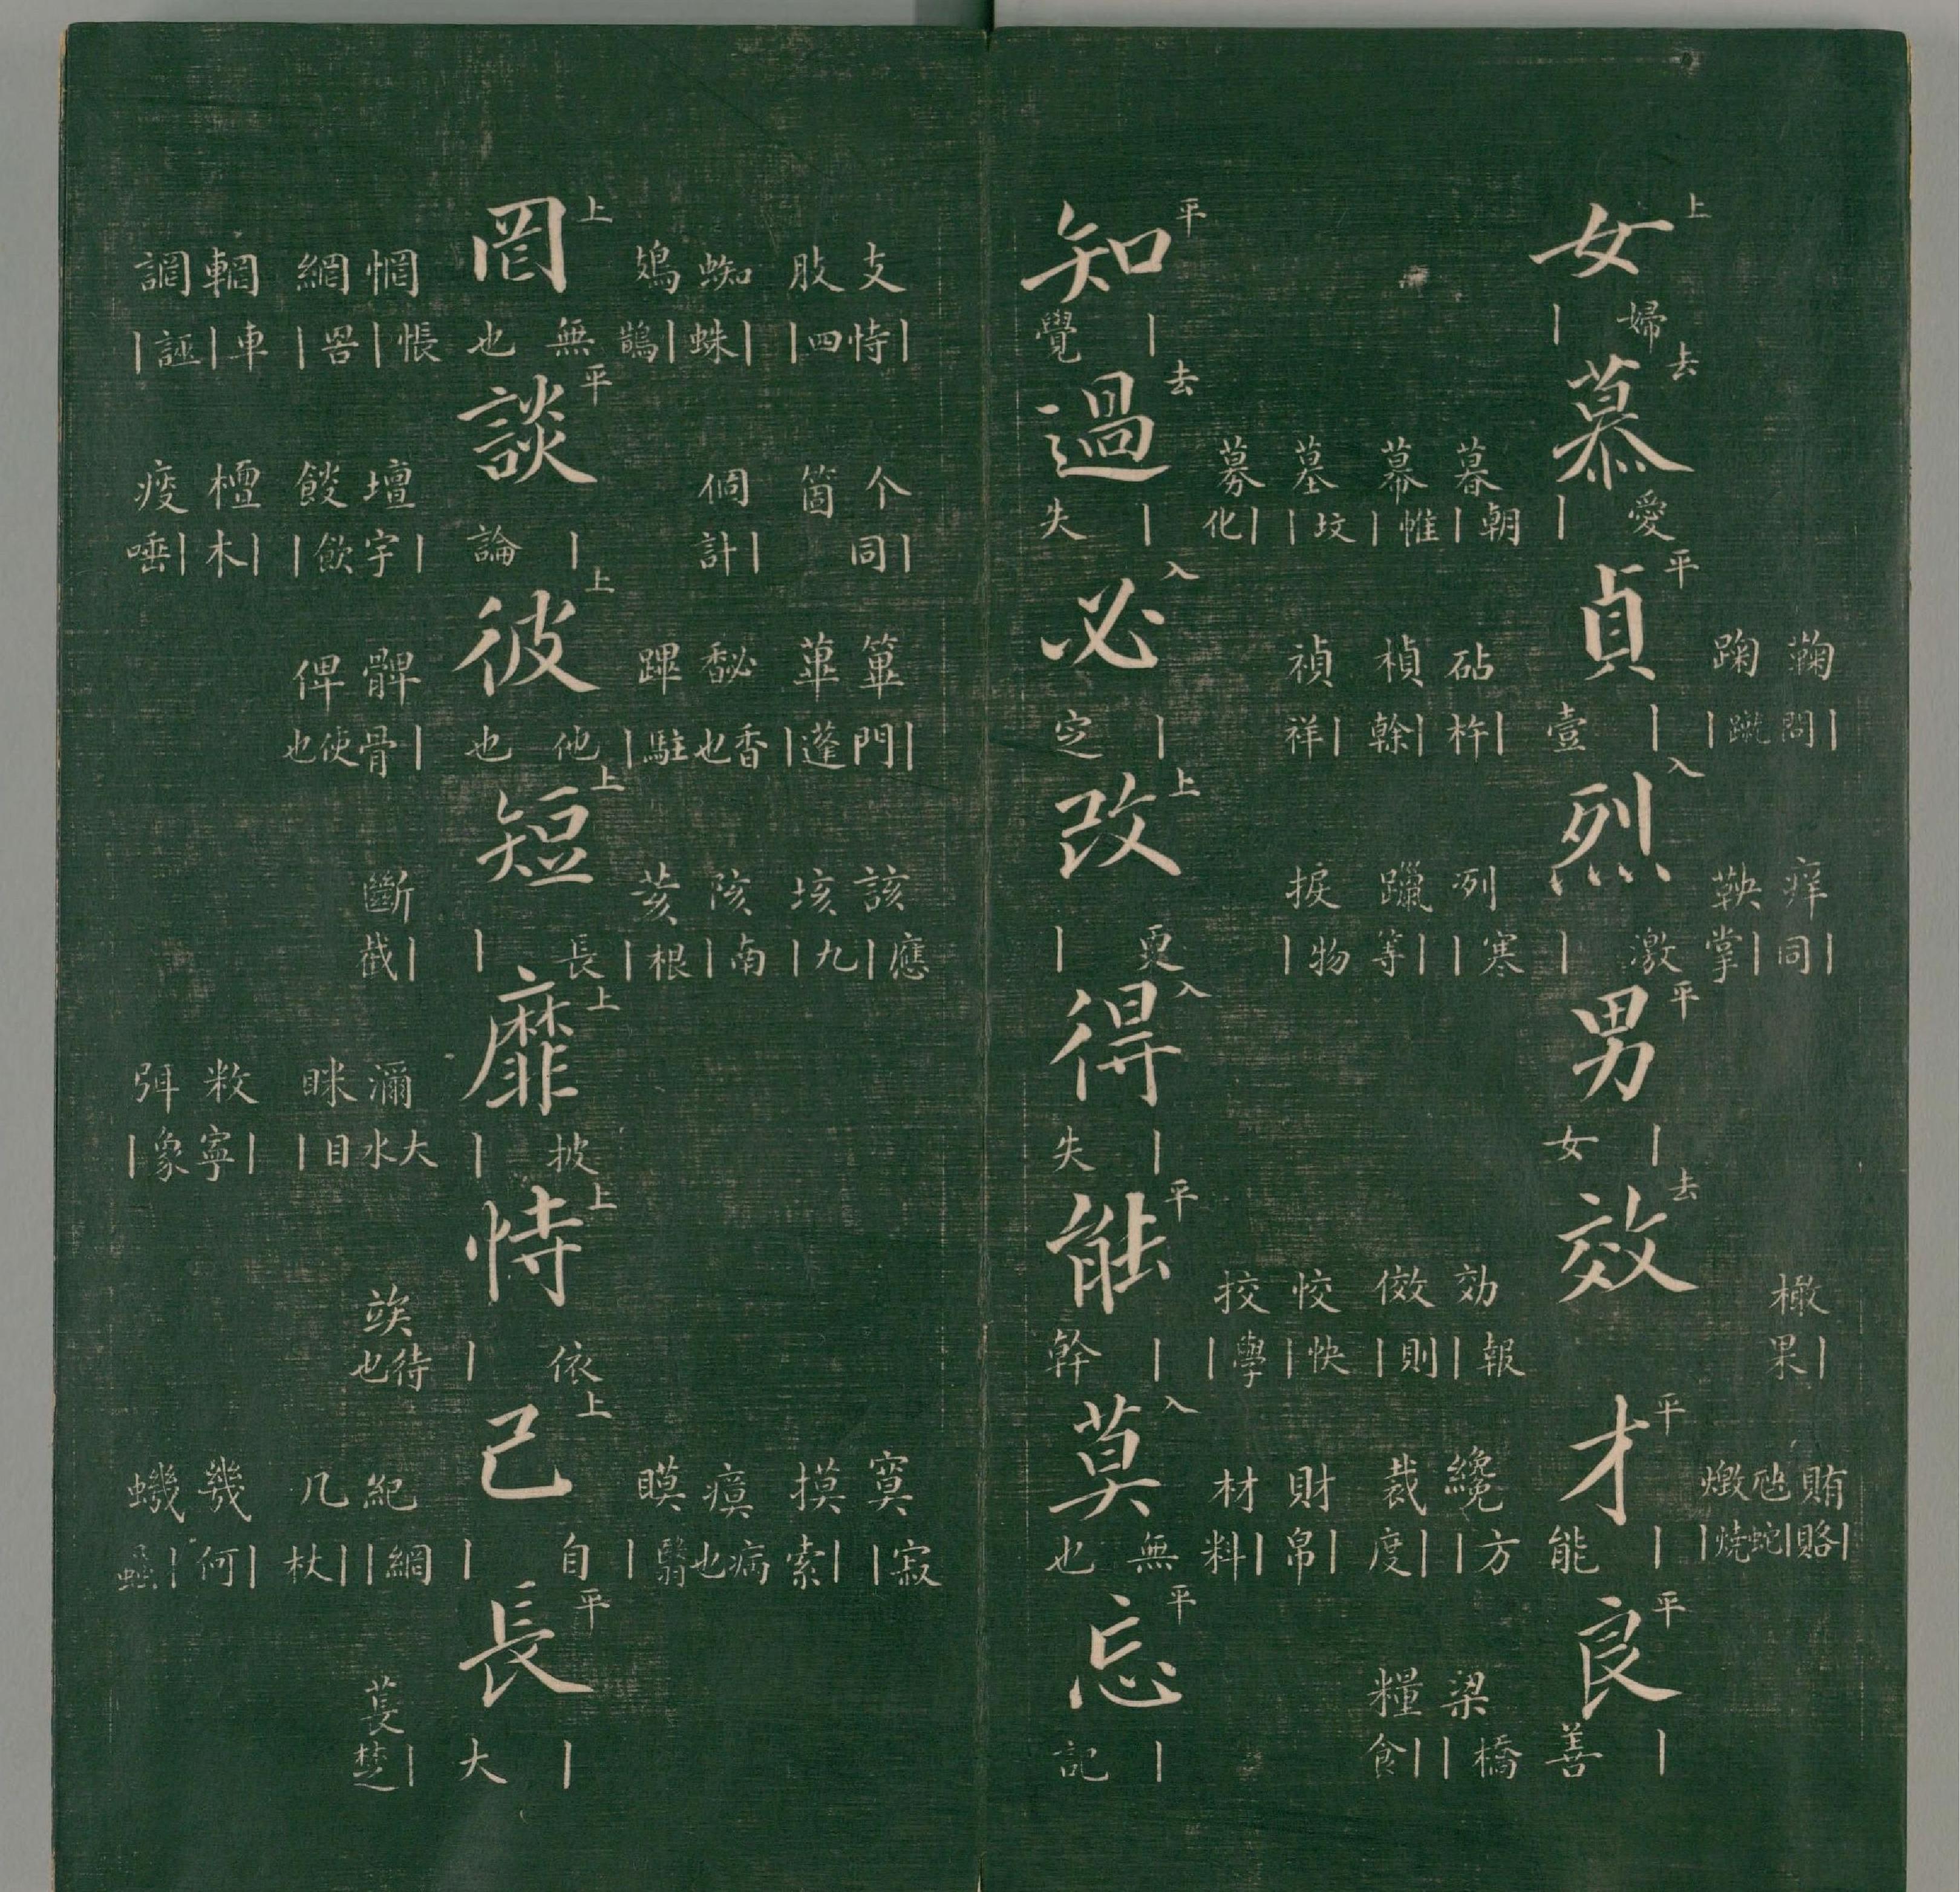 鞠丨問 痒丨同 橄丨果 賄丨賂
踘蹴丨 鞅丨掌 虵丨蛇 燒丨
女上婦丨慕去愛丨貞平丨壹烈入激丨男平丨女效去才平丨能良平丨善
暮朝丨 砧丨杵 冽寒丨 効報丨 纔方丨 梁橋丨
幕惟丨 楨丨榦 躐丨等 傚則丨 裁丨度 糧丨食
墓坟丨 禎丨祥 捩物丨 恔快丨 財丨帛
募丨化 挍學丨 材丨料
知平丨覺過去丨失必入丨定改上更丨得入丨失能平丨幹莫入無也忘平丨記
支丨恃 个丨同 篳丨門 該應丨 寞寂丨
肢四丨 箇 蓽蓬丨 垓九丨 摸丨索
蜘丨蛛 個丨計 馝香也 陔南丨 瘼病也
鳷丨鵲 蹕駐丨 荄根丨 瞙翳丨
罔上無也談平丨論彼上他也短上長丨靡上披丨恃上依丨己上自丨長平丨大
惘悵丨 壇丨宇 髀丨骨 斷丨截 瀰大水 竢待也 紀綱丨 萇丨楚
網罟丨 餤飲丨 俾使也 眯目丨 几丨杖
輞車丨 檀丨木 敉丨寧 幾丨何
誷誣丨 痰丨唾 弭象丨 蟣丨蝨